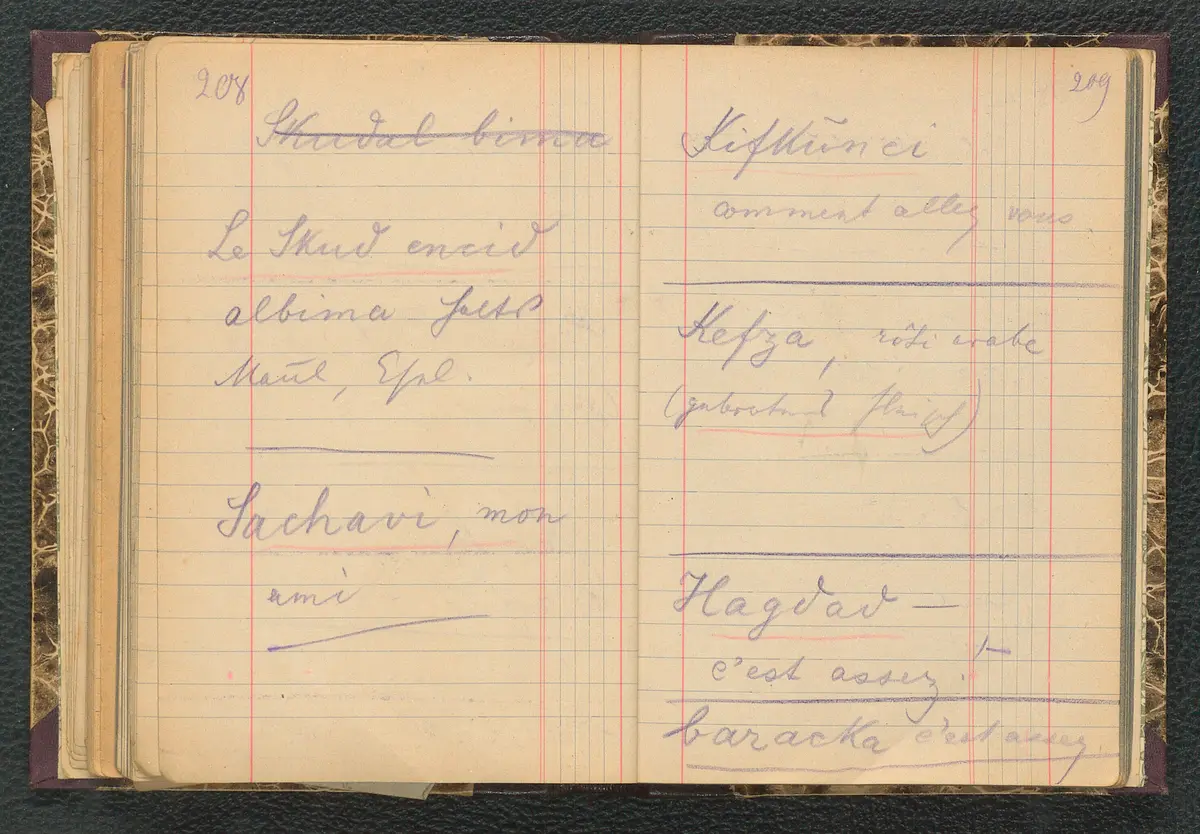 208
Skudal bima
Le Skud encid
albima halts
Maul, Esel.
Sachavi, mon
ami
209
Kifkūnci
comment allez vous
Kefza, rôti arabe
(gebratenes Fleisch)
Hagdad —
c'est assez!
baracka c'est assez.